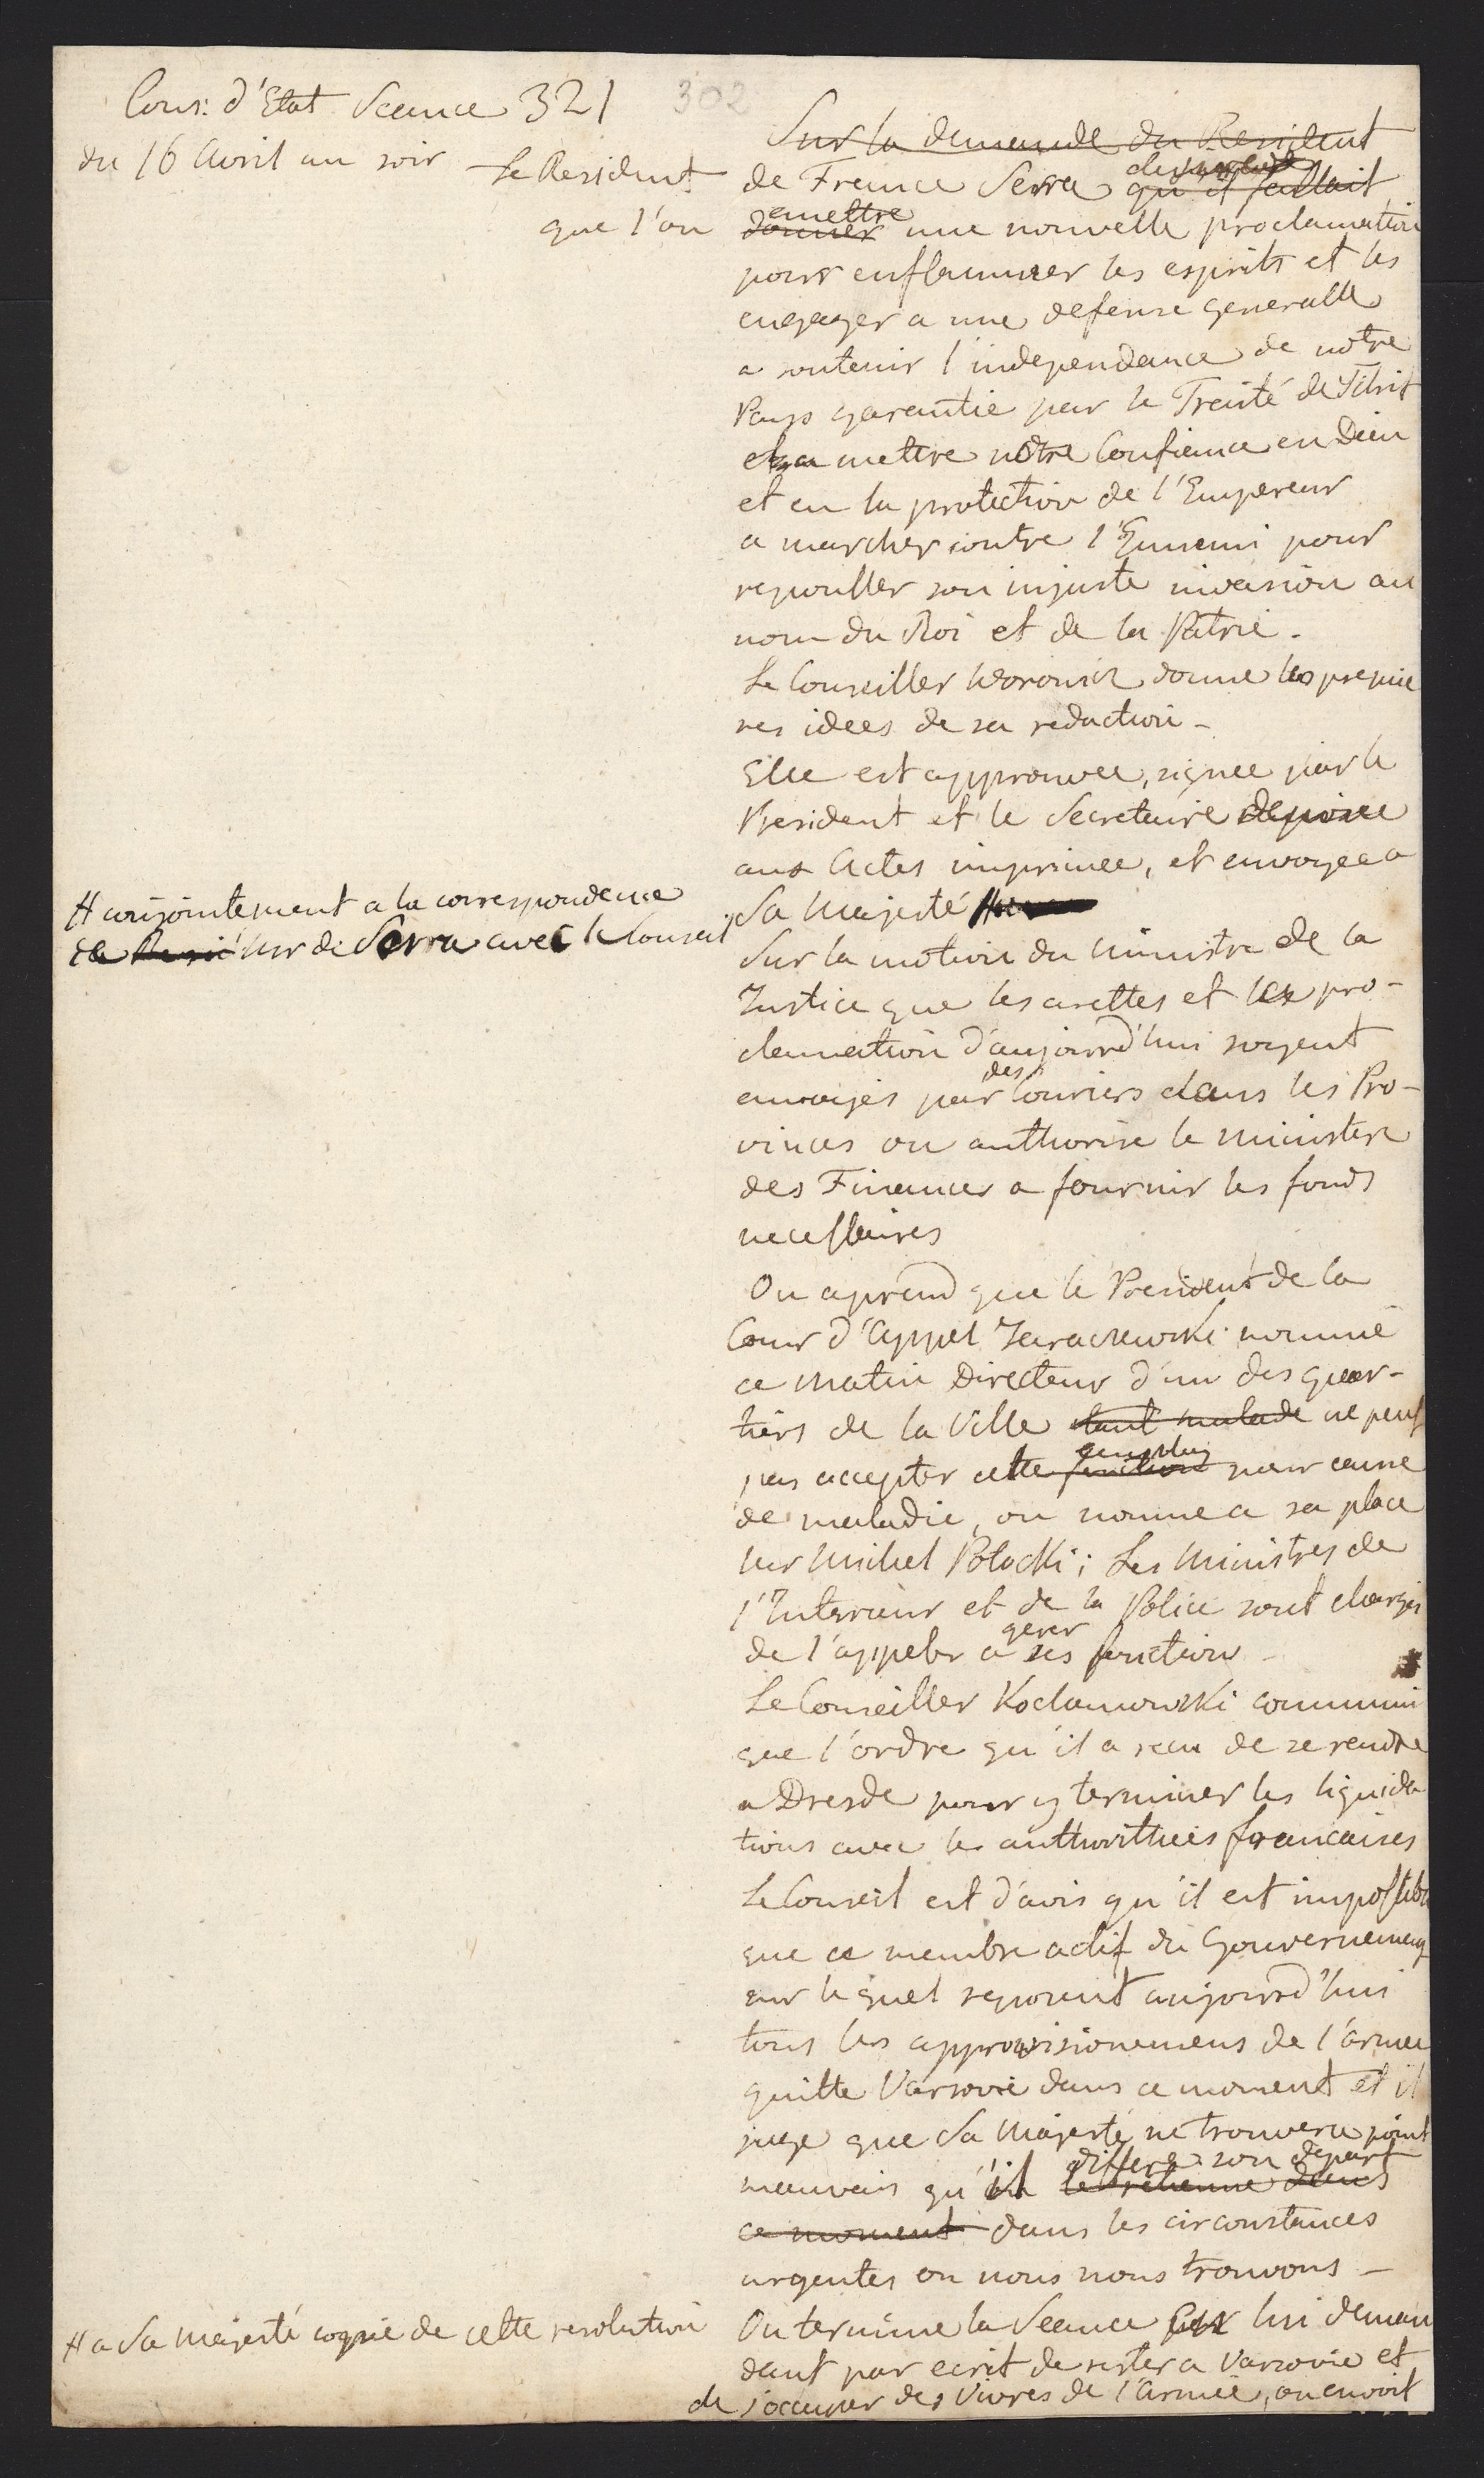 Cons: d'Etat Seance 321
302
du 16 Avril au soir
Sur la demande du Resident
Le Resident de France Serra demande qu'il fallait
que l'on emettre donner une nouvelle proclamation
pour enflammer les esprits et les
engager a une defense generalle
a soutenir l'independance de notre
Pays garantie par le Traité de Tilsit
et a mettre notre Confience en Dieu
et en la protection de l'Empereur
a marcher contre l'Ennemi pour
repousser son injuste invasion au
nom du Roi et de la Patrie.
Le Conseiller Woronicz donne les premie
res idees de sa redaction -
Elle est approuvee, signee par le
President et le Secretaire deposee
aux Actes imprimee, et envoyee a
Sa Majesté
# conjointement a la correspondence
de Resi Mr de Serra avec le Conseil
Sur la motion du Ministre de la
Justice que les arettes et les pro-
clamation d'aujourd'hui soyent
envoyés par des Couriers dans les Pro-
vinces on authorise le Ministere
des Finances a fournir les fonds
necessaires
On aprend que le President de la
Cour d'Appel Jaraczewski nommé
ce matin Directeur d'un des quar-
tiers de la Ville etant malade ne peut
pas accepter cette fonction pour cause
de maladie, on nomme a sa place
Mr Michel Potocki; Les Ministres de
l'Interieur et de la Police sont chargés
de l'appeler a gerer ses fonction -
Le Conseiller Kochanowski communi
que l'ordre qu'il a recu de se rendre
a Dresde pour y terminer les liquida
tions avec les authorithées francaises
Le Conseil est d'avis qu'il est impossible
que ce membre actif du Gouvernement
sur lequel reposent aujourd'hui
tous les approvisionemens de l'armee
quitte Varsovie dans ce moment et il
juge que Sa Majesté ne trouvera point
mauvais qu'il differe son depart le retienne dans
ce moment dans les circonstances
urgentes ou nous nous trouvons -
On termine la Seance lui deman
dant par ecrit de rester a Varsovie et
de s'occuper des Vivres de l'Armée, on envoit
# a Sa Majesté copie de cette resolution